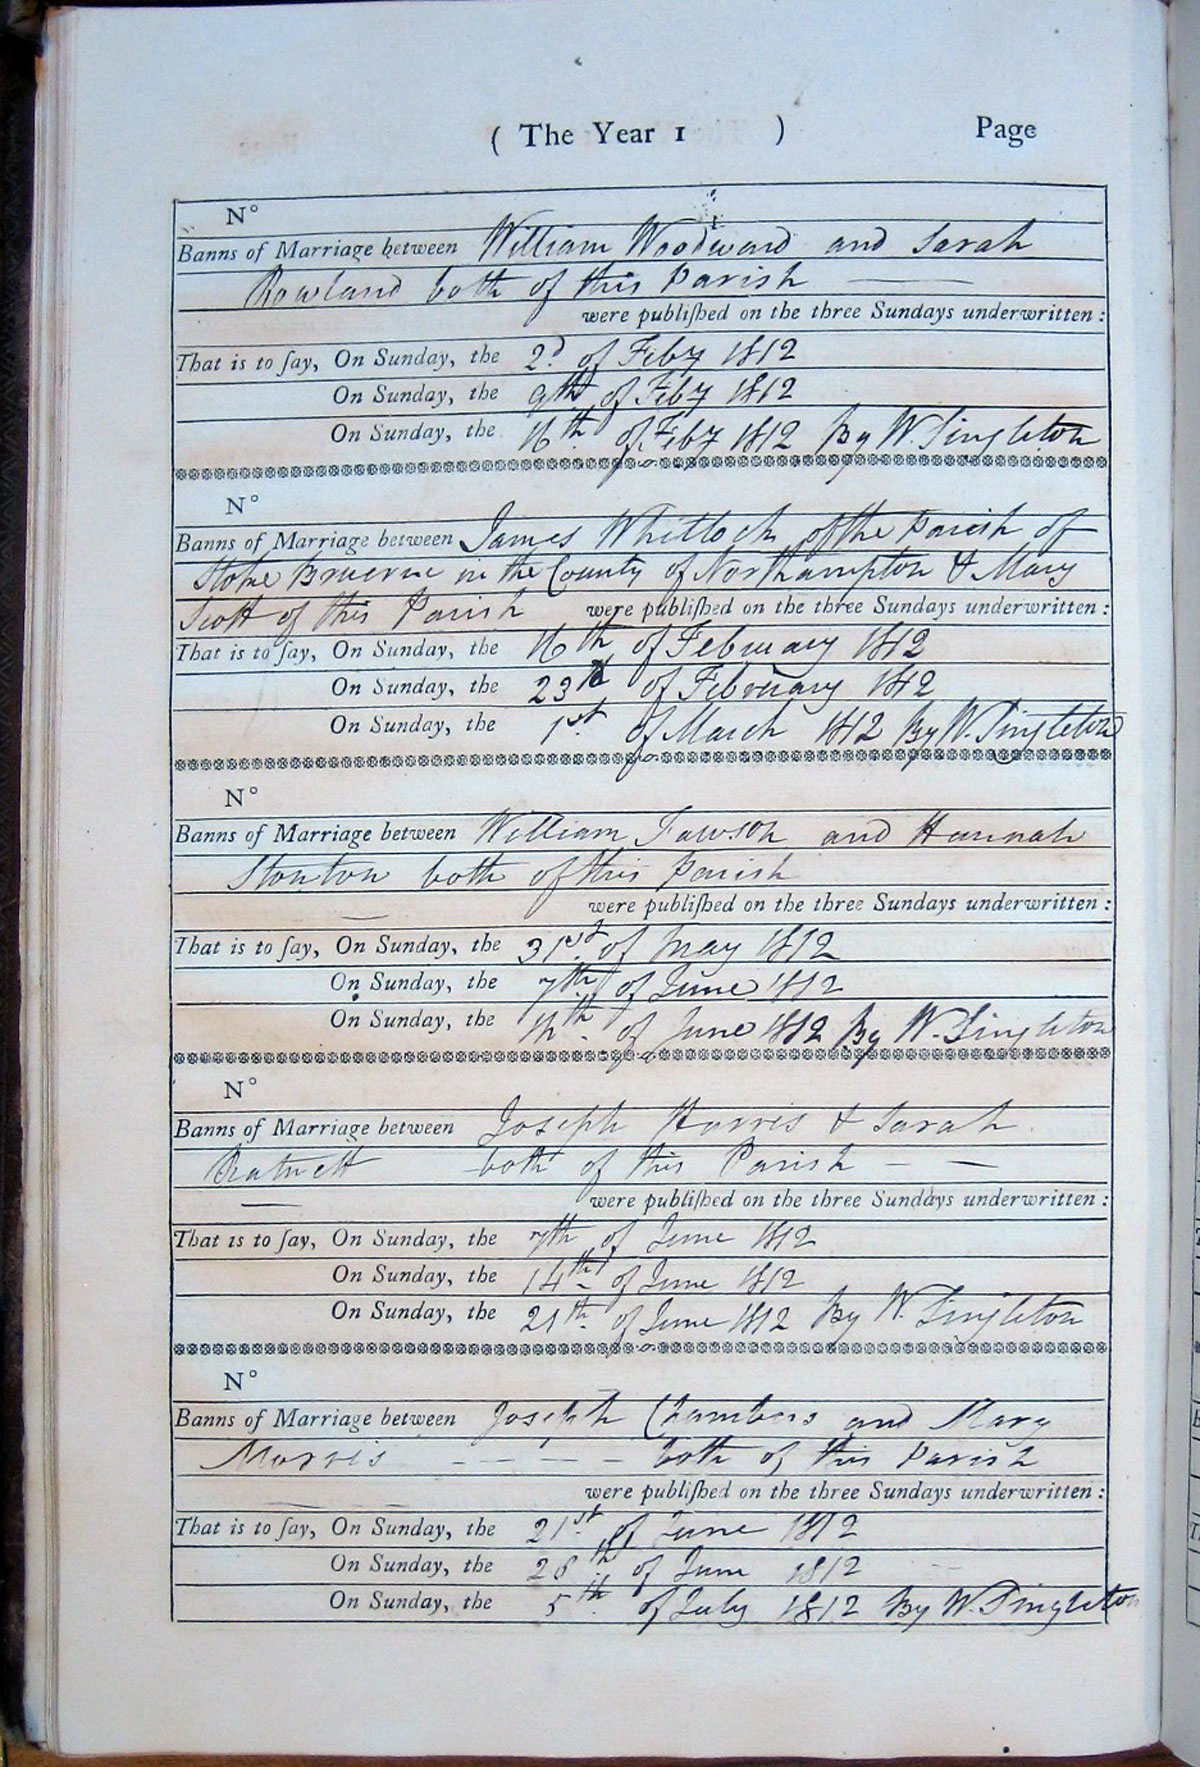 ( The Year 1 ) Page
N°
Banns of Marriage between William Woodward and Sarah
Rowland both of this Parish
were publiſhed on the three Sundays underwritten:
That is to ſay, On Sunday, the 2d of Feby 1812
On Sunday, the 9th of Feby 1812
On Sunday, the 16th of Feby 1812 By W. Singleton
N°
Banns of Marriage between James Whitlock of the Parish of
Stoke Bruerne in the County of Northampton & Mary
Scott of this Parish were publiſhed on the three Sundays underwritten:
That is to ſay, On Sunday, the 16th of February 1812
On Sunday, the 23d of February 1812
On Sunday, the 1st of March 1812 By W. Singleton
N°
Banns of Marriage between William and Hannah
Stanton both of this Parish
were publiſhed on the three Sundays underwritten:
That is to ſay, On Sunday, the 31st of May 1812
On Sunday, the 7th of June 1812
On Sunday, the 14th of June 1812 By W. Singleton
N°
Banns of Marriage between Joseph Harris & Sarah
both of this Parish
were publiſhed on the three Sundays underwritten:
That is to ſay, On Sunday, the 7th of June 1812
On Sunday, the 14th of June 1812
On Sunday, the 21th of June 1812 By W. Singleton
N°
Banns of Marriage between Joseph Chambers and Mary
Morris both of this Parish
were publiſhed on the three Sundays underwritten:
That is to ſay, On Sunday, the 21st of June 1812
On Sunday, the 28th of June 1812
On Sunday, the 5th of July 1812 By W. Singleton